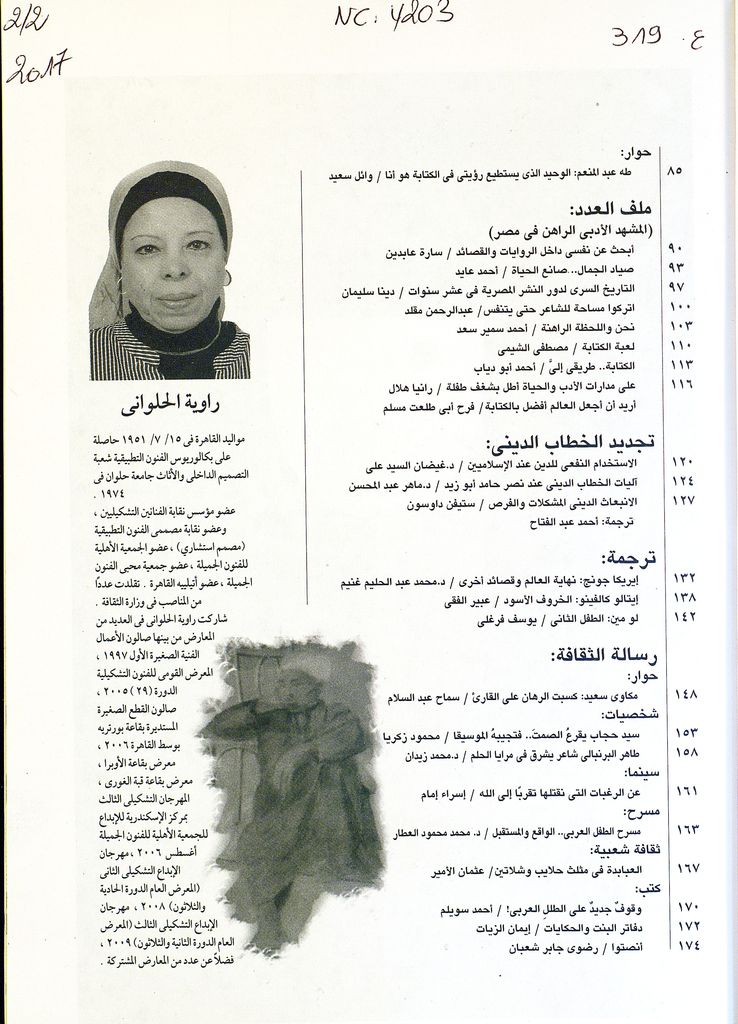 2/2
2017
NC: 4203
319 ع.
حوار:
طه عبد المنعم: الوحيد الذى يستطيع رؤيتى فى الكتابة هو أنا / وائل سعيد ٨٥
ملف العدد:
(المشهد الأدبى الراهن فى مصر)
أبحث عن نفسى داخل الروايات والقصائد / سارة عابدين ٩٠
صياد الجمال.. صانع الحياة / أحمد عايد ٩٣
التاريخ السرى لدور النشر المصرية فى عشر سنوات / دينا سليمان ٩٧
اتركوا مساحة للشاعر حتى يتنفس/ عبدالرحمن مقلد ١٠٠
نحن واللحظة الراهنة / أحمد سمير سعد ١٠٣
لعبة الكتابة / مصطفى الشيمى ١١٠
الكتابة.. طريقى إلىَّ / أحمد أبو دياب ١١٣
على مدارات الأدب والحياة أطل بشغف طفلة / رانيا هلال ١١٦
أريد أن أجعل العالم أفضل بالكتابة/ فرح أبى طلعت مسلم
تجديد الخطاب الدينى:
الاستخدام النفعى للدين عند الإسلاميين / د.غيضان السيد على ١٢٠
آليات الخطاب الدينى عند نصر حامد أبو زيد / د.ماهر عبد المحسن ١٢٤
الانبعاث الدينى المشكلات والفرص / ستيفن داوسون ١٢٧
ترجمة: أحمد عبد الفتاح
ترجمة:
إيريكا جونج: نهاية العالم وقصائد أخرى / د.محمد عبد الحليم غنيم ١٣٢
إيتالو كالفينو: الخروف الأسود / عبير الفقى ١٣٨
لو مين: الطفل الثانى / يوسف فرغلى ١٤٢
رسالة الثقافة:
حوار:
مكاوى سعيد: كسبت الرهان على القارئ / سماح عبد السلام ١٤٨
شخصيات:
سيد حجاب يقرعُ الصمتَ.. فتجيبهُ الموسيقا / محمود زكريا ١٥٣
طاهر البرنبالى شاعر يشرق فى مرايا الحلم / د.محمد زيدان ١٥٨
سينما:
عن الرغبات التى نقتلها تقربًا إلى الله / إسراء إمام ١٦١
مسرح:
مسرح الطفل العربى.. الواقع والمستقبل / د. محمد محمود العطار ١٦٣
ثقافة شعبية:
العبابدة فى مثلث حلايب وشلاتين/ عثمان الأمير ١٦٧
كتب:
وقوفٌ جديدٌ على الطللِ العربى! / أحمد سويلم ١٧٠
دفاتر البنت والحكايات / إيمان الزيات ١٧٢
أنصتوا / رضوى جابر شعبان ١٧٤
راوية الحلوانى
مواليد القاهرة فى ١٥ /٧ /١٩٥١ حاصلة
على بكالوريوس الفنون التطبيقية شعبة
التصميم الداخلى والأثاث جامعة حلوان فى
١٩٧٤ .
عضو مؤسس نقابة الفنانين التشكيليين ،
وعضو نقابة مصممى الفنون التطبيقية
(مصمم استشارى) ، عضو الجمعية الأهلية
للفنون الجميلة ، عضو جمعية محبى الفنون
الجميلة ، عضو أتيلييه القاهرة . تقلدت عددًا
من المناصب فى وزارة الثقافة .
شاركت راوية الحلوانى فى العديد من
المعارض من بينها صالون الأعمال
الفنية الصغيرة الأول ١٩٩٧ ،
المعرض القومى للفنون التشكيلية
الدورة (٢٩) ٢٠٠٥ ،
صالون القطع الصغيرة
المستديرة بقاعة بورتريه
بوسط القاهرة ٢٠٠٦ ،
معرض بقاعة الأوبرا ،
معرض بقاعة قبة الغورى ،
المهرجان التشكيلى الثالث
بمركز الإسكندرية للإبداع
للجمعية الأهلية للفنون الجميلة
أغسطس ٢٠٠٦ ، مهرجان
الإبداع التشكيلى الثانى
(المعرض العام الدورة الحادية
والثلاثون) ٢٠٠٨ ، مهرجان
الإبداع التشكيلى الثالث (المعرض
العام الدورة الثانية والثلاثون) ٢٠٠٩ ،
فضلاً عن عدد من المعارض المشتركة .